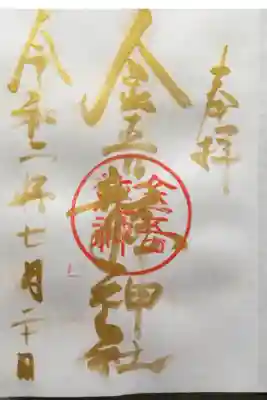 奉拝
金吾龍神社
令和二年七月二十日